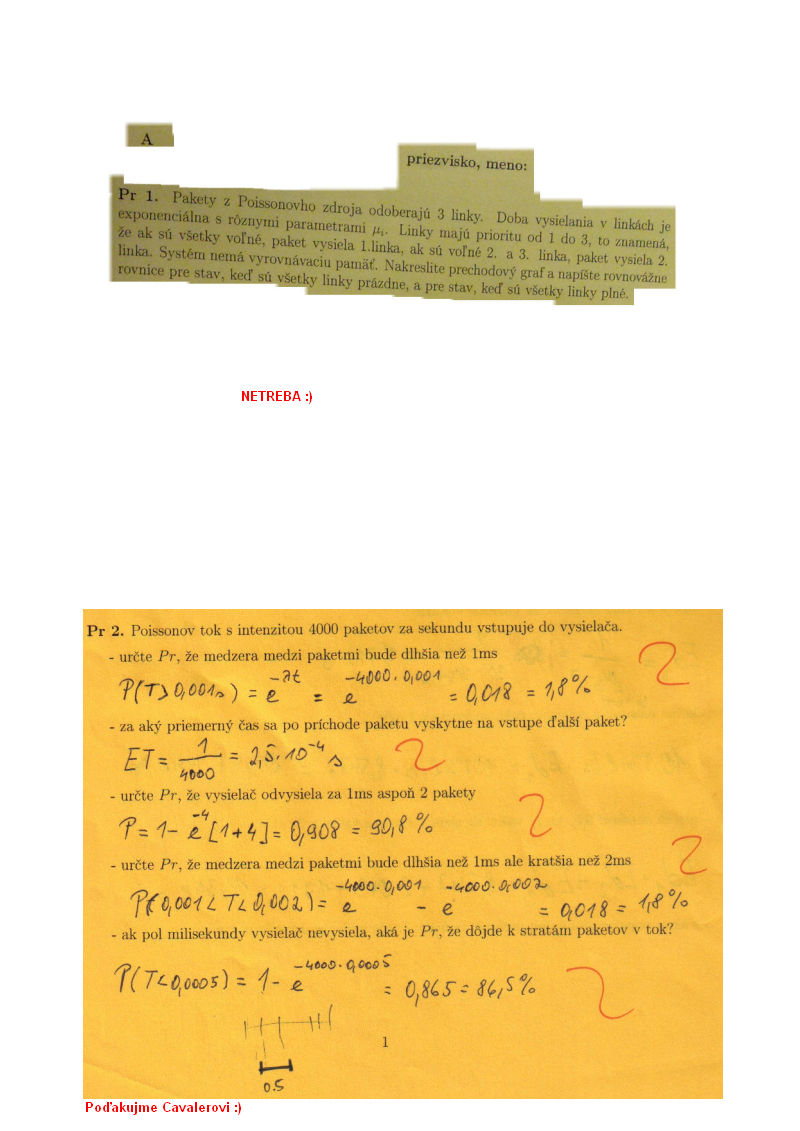 A
priezvisko, meno:
Pr 1. Pakety z Poissonovho zdroja odoberajú 3 linky. Doba vysielania v linkách je
exponenciálna s rôznymi parametrami μᵢ. Linky majú prioritu od 1 do 3, to znamená,
že ak sú všetky voľné, paket vysiela 1.linka, ak sú voľné 2. a 3. linka, paket vysiela 2.
linka. Systém nemá vyrovnávaciu pamäť. Nakreslite prechodový graf a napíšte rovnovážne
rovnice pre stav, keď sú všetky linky prázdne, a pre stav, keď sú všetky linky plné.
NETREBA :)
Pr 2. Poissonov tok s intenzitou 4000 paketov za sekundu vstupuje do vysielača.
- určte Pr, že medzera medzi paketmi bude dlhšia než 1ms
2
P(T>0,001s) = e^-λt = e^-4000·0,001 = 0,018 = 1,8%
- za aký priemerný čas sa po príchode paketu vyskytne na vstupe ďalší paket?
ET = 1/4000 = 2,5·10^-4 s 2
- určte Pr, že vysielač odvysiela za 1ms aspoň 2 pakety
P = 1- e^-4[1+4] = 0,908 = 90,8% 2
- určte Pr, že medzera medzi paketmi bude dlhšia než 1ms ale kratšia než 2ms
2
P(0,001<T<0,002) = e^-4000·0,001 - e^-4000·0,002 = 0,018 = 1,8%
- ak pol milisekundy vysielač nevysiela, aká je Pr, že dôjde k stratám paketov v tok?
P(T<0,0005) = 1- e^-4000·0,0005 = 0,865 = 86,5% 2
1
0.5
Poďakujme Cavalerovi :)